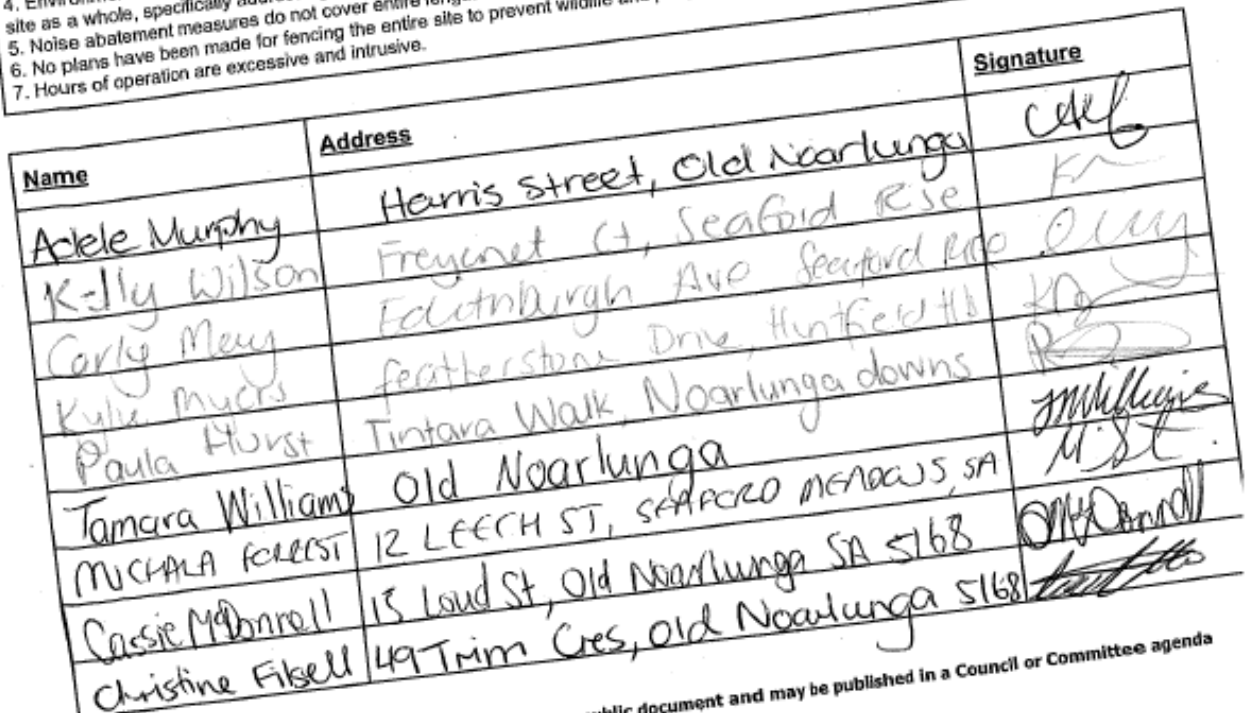 4. Environme
site as a whole, specifically
5. Noise abatement measures do not cover entire
6. No plans have been made for fencing the entire site to prevent wildlife and
7. Hours of operation are excessive and intrusive.
Name Address Signature
Adele Murphy Harris Street, Old Noarlunga
Kelly Wilson Freycnet Ct, Seaford Rise
Carly Ave Seaford Rise
Kylie Myers featherstone Drive, Huntfield Hts
Paula Hurst Tintara Walk, Noarlunga downs
Tamara Williams Old Noarlunga
MICHALA FORREST 12 LEECH ST, SEAFORD MEADOWS, SA
Cassie McDonnell 15 Loud St, Old Noarlunga SA 5168
Christine Filsell 49 Trim Cres, Old Noarlunga 5168
public document and may be published in a Council or Committee agenda